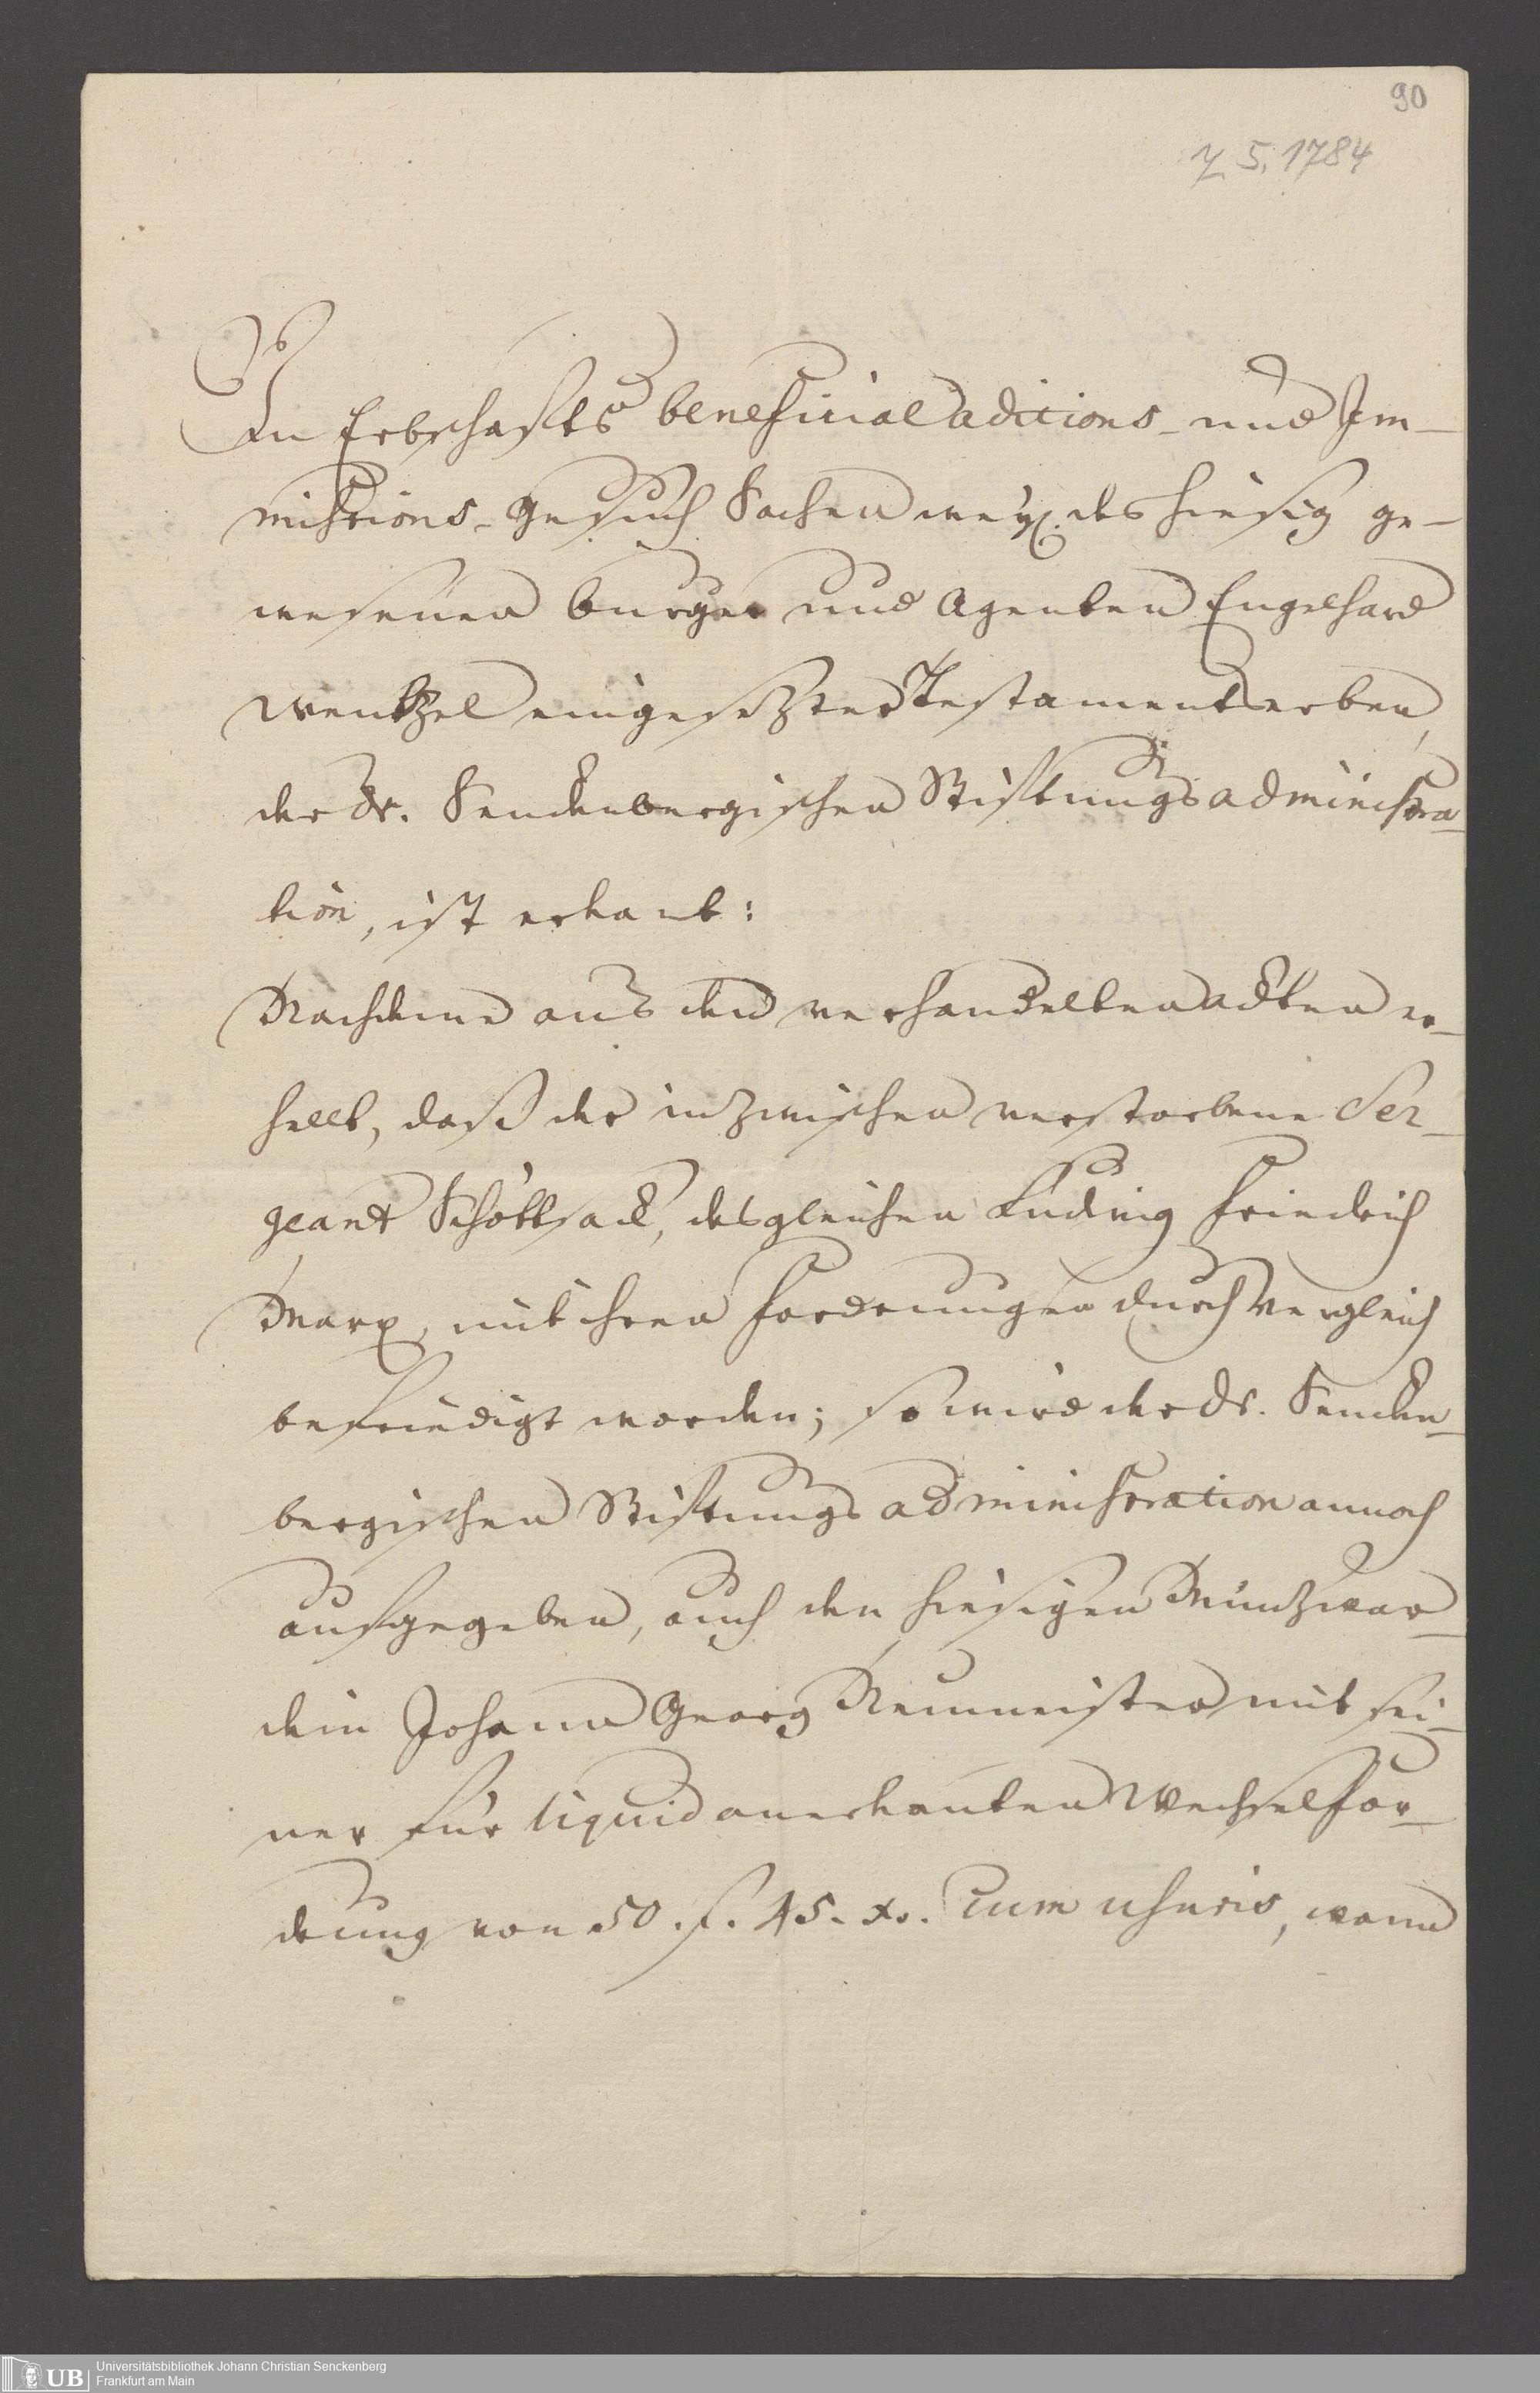 90
7. 5. 1784
In Erbschafts beneficial aditions- und Im-
missions-Gesuch Sachen weyl. des hiesig ge-
wesenen Burger und Agenten Engelhard
Wentzel eingesetzter Testamentserben,
der Dr. Senckenbergischen Stiftungsadministra-
tion, ist erkant:
Nachdeme aus den verhandelten Acten er-
hellt, daß der inzwischen verstorbene Ser-
geant Schottsack, desgleichen Ludwig Friedrich
Marx, mit ihren Forderungen durch Vergleich
befriedigt worden; so wird der Dr. Sencken-
bergischen Stiftungsadministration annoch
aufgegeben, auch den hiesigen Münzwar-
dein Johann Georg Neumeister mit sei-
ner für liquid anerkanten Wechselfor-
derung von 50. f. 45. xr. cum usuris, wann
UB
Universitätsbibliothek Johann Christian Senckenberg
Frankfurt am Main